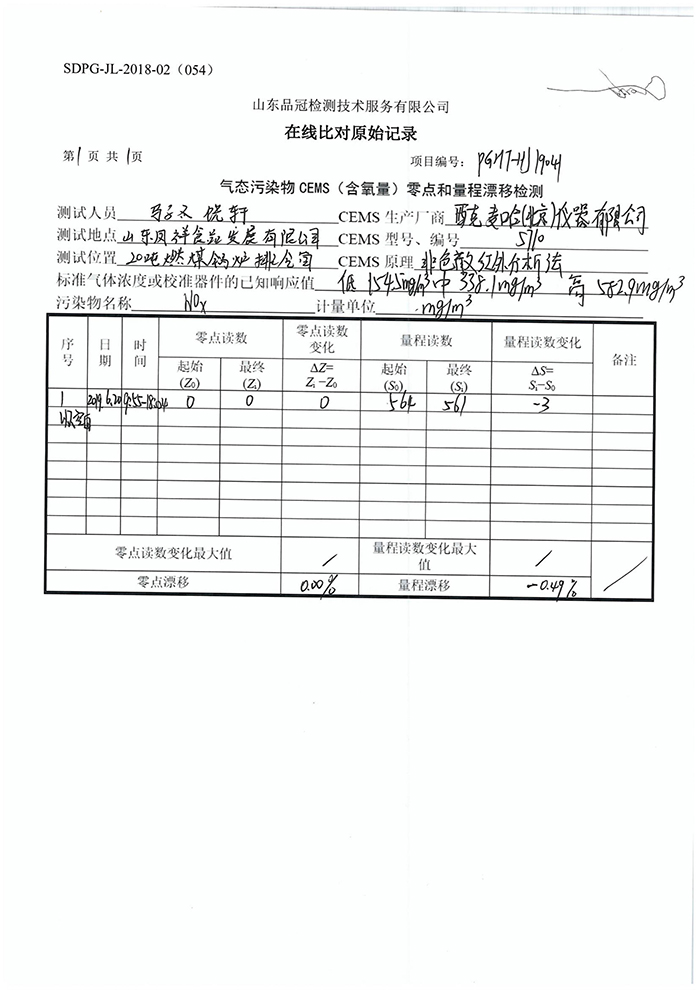 SDPG-JL-2018-02（054）
山东品冠检测技术服务有限公司
在线比对原始记录
第1页 共1页 项目编号：PGHT-HJ19041
气态污染物 CEMS（含氧量）零点和量程漂移检测
测试人员 CEMS 生产厂商 西克麦哈(北京)仪器有限公司
测试地点 山东凤祥食品发展有限公司 CEMS 型号、编号 S710
测试位置 20吨燃煤锅炉排气筒 CEMS 原理 非色散红外分析法
标准气体浓度或校准器件的已知响应值 低 154.5mg/m³ 中 338.1mg/m³ 高 582.9mg/m³
污染物名称 NOx 计量单位 mg/m³
序号 日期 时间 零点读数 零点读数变化 量程读数 量程读数变化 备注
起始(Z₀) 最终(Zᵢ) ΔZ=Zᵢ-Z₀ 起始(S₀) 最终(Sᵢ) ΔS=Sᵢ-S₀
1 2019.6.20 0 0 0 564 561 -3
以下空白
零点读数变化最大值 / 量程读数变化最大值 / /
零点漂移 0.00% 量程漂移 -0.49%